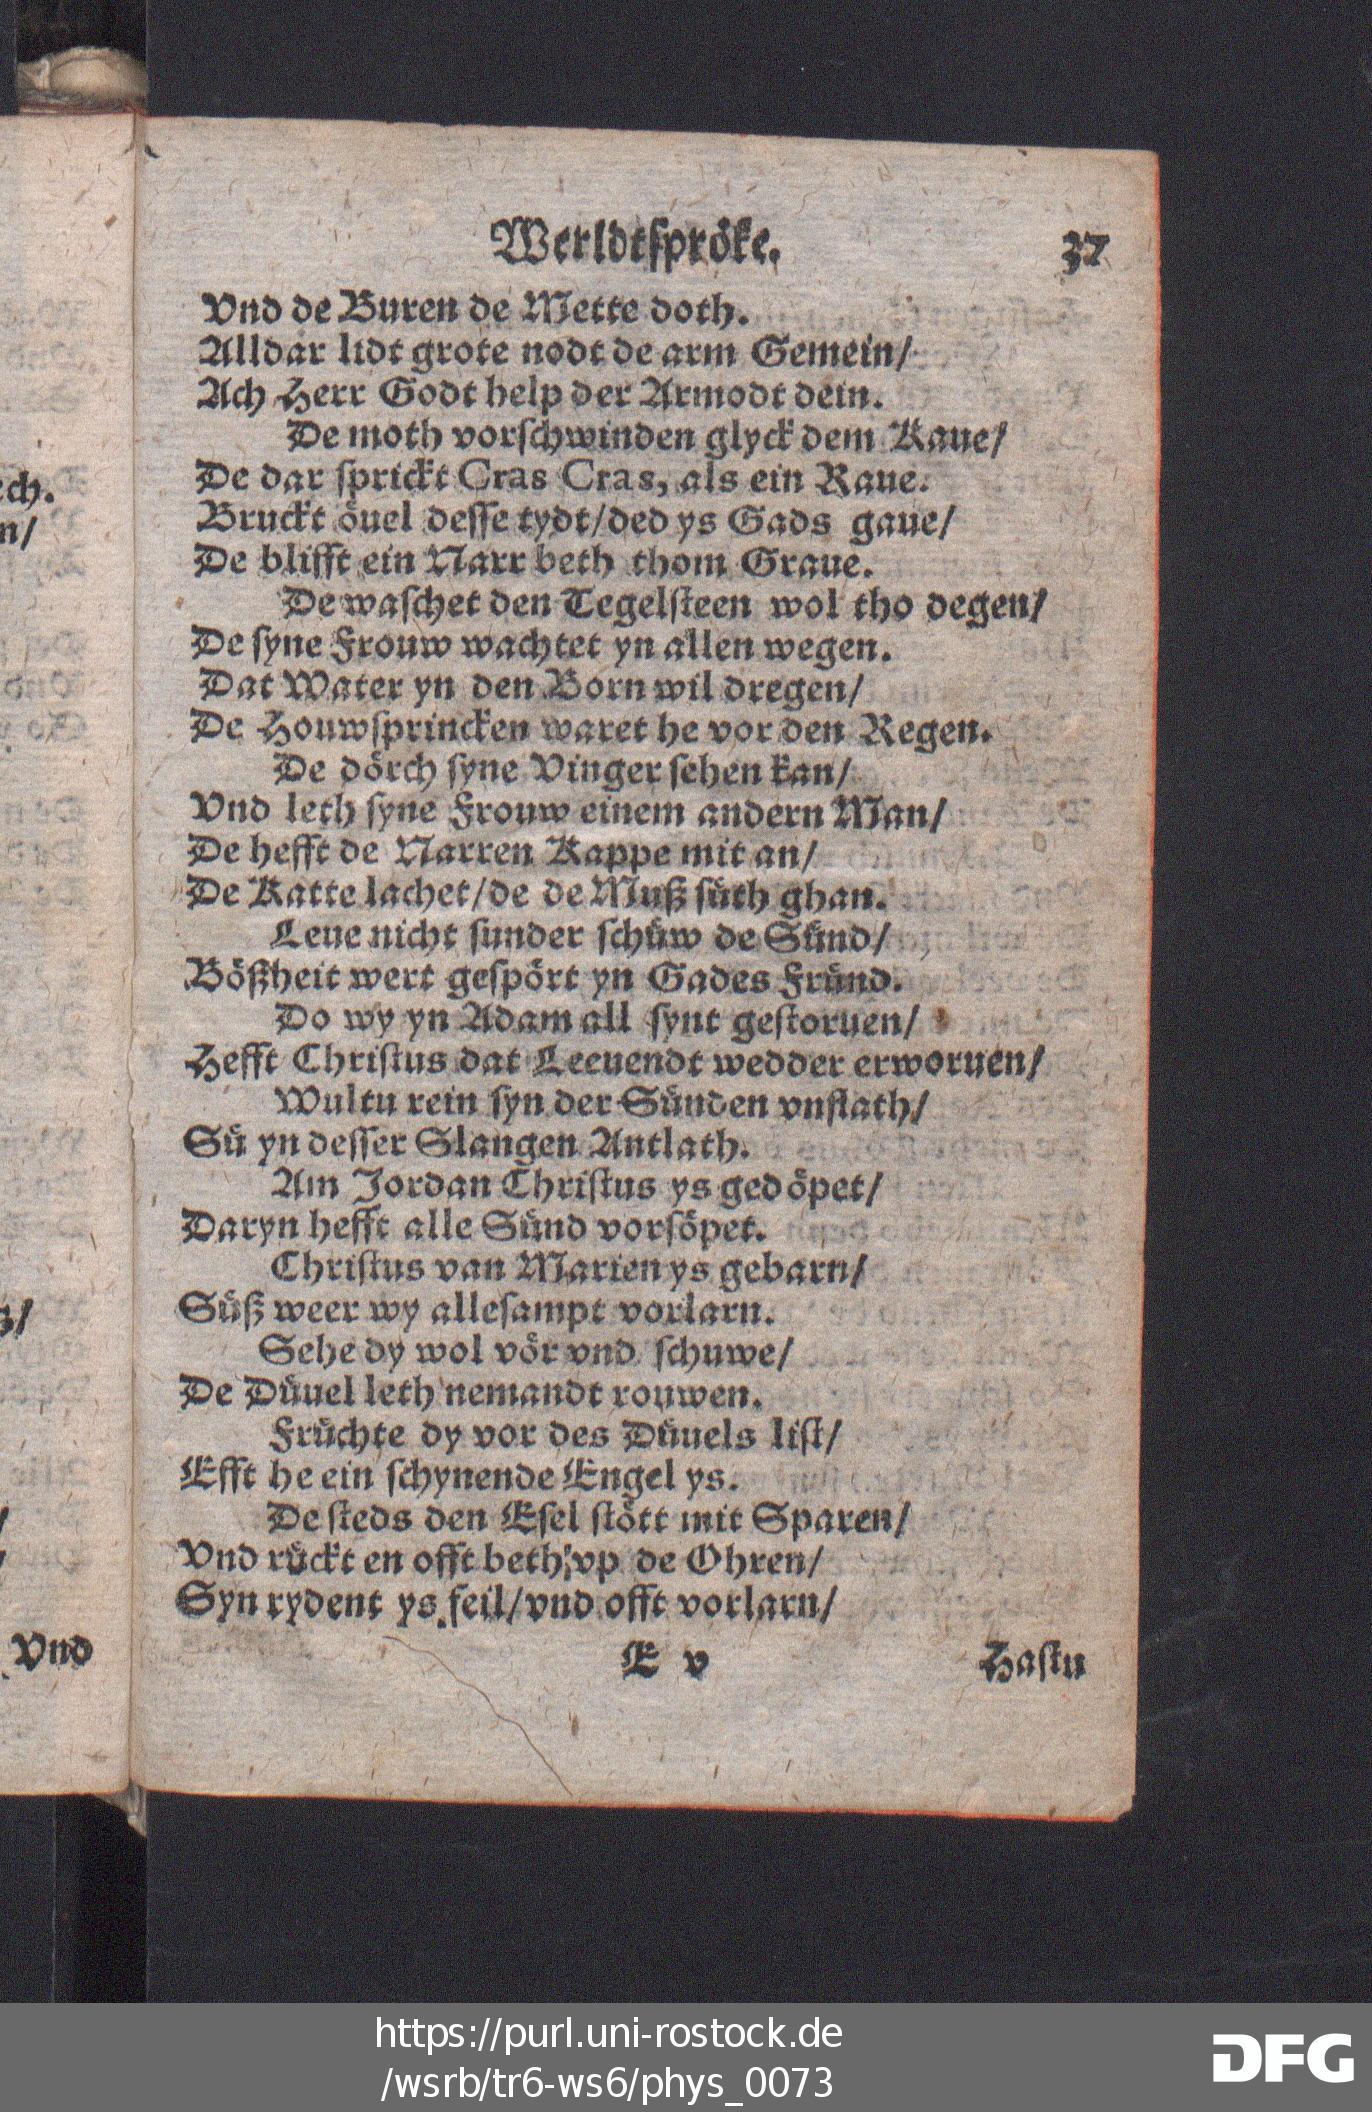 Werldtspröke. 37
Vnd de Buren de Mette doth.
Alldar lidt grote nodt de arm Gemein/
Ach Herr Godt help der Armodt dein.
De moth vorschwinden glyck dem Kaue/
De dar sprickt Cras Cras, als ein Raue.
Bruckt öuel desse tydt/ded ys Gads gaue/
De blifft ein Narr beth thom Graue.
De waschet den Tegelsteen wol tho degen/
De syne Frouw wachtet yn allen wegen.
Dat Water yn den Born wil dregen/
De Houwsprincken waret he vor den Regen.
De dörch syne Vinger sehen kan/
Vnd leth syne Frouw einem andern Man/
De hefft de Narren Kappe mit an/
De Katte lachet/de de Muß süth ghan.
Leue nicht sunder schüw de Sünd/
Bößheit wert gespört yn Gades Fründ.
Do wy yn Adam all synt gestoruen/
Hefft Christus dat Leeuendt wedder erworuen/
Wultu rein syn der Sünden vnflath/
Sü yn desser Slangen Antlath.
Am Jordan Christus ys gedöpet/
Daryn hefft alle Sünd vorsöpet.
Christus van Marien ys gebarn/
Süß weer wy allesampt vorlarn.
Sehe dy wol vör vnd schuwe/
De Düuel leth nemandt rouwen.
Früchte dy vor des Düuels list/
Efft he ein schynende Engel ys.
De steds den Esel stött mit Sparen/
Vnd rückt en offt beth vp de Ohren/
Syn rydent ys feil/vnd offt vorlarn/
E v Hastu
ech.
n/
Vnd
https://purl.uni-rostock.de
/wsrb/tr6-ws6/phys_0073
DFG